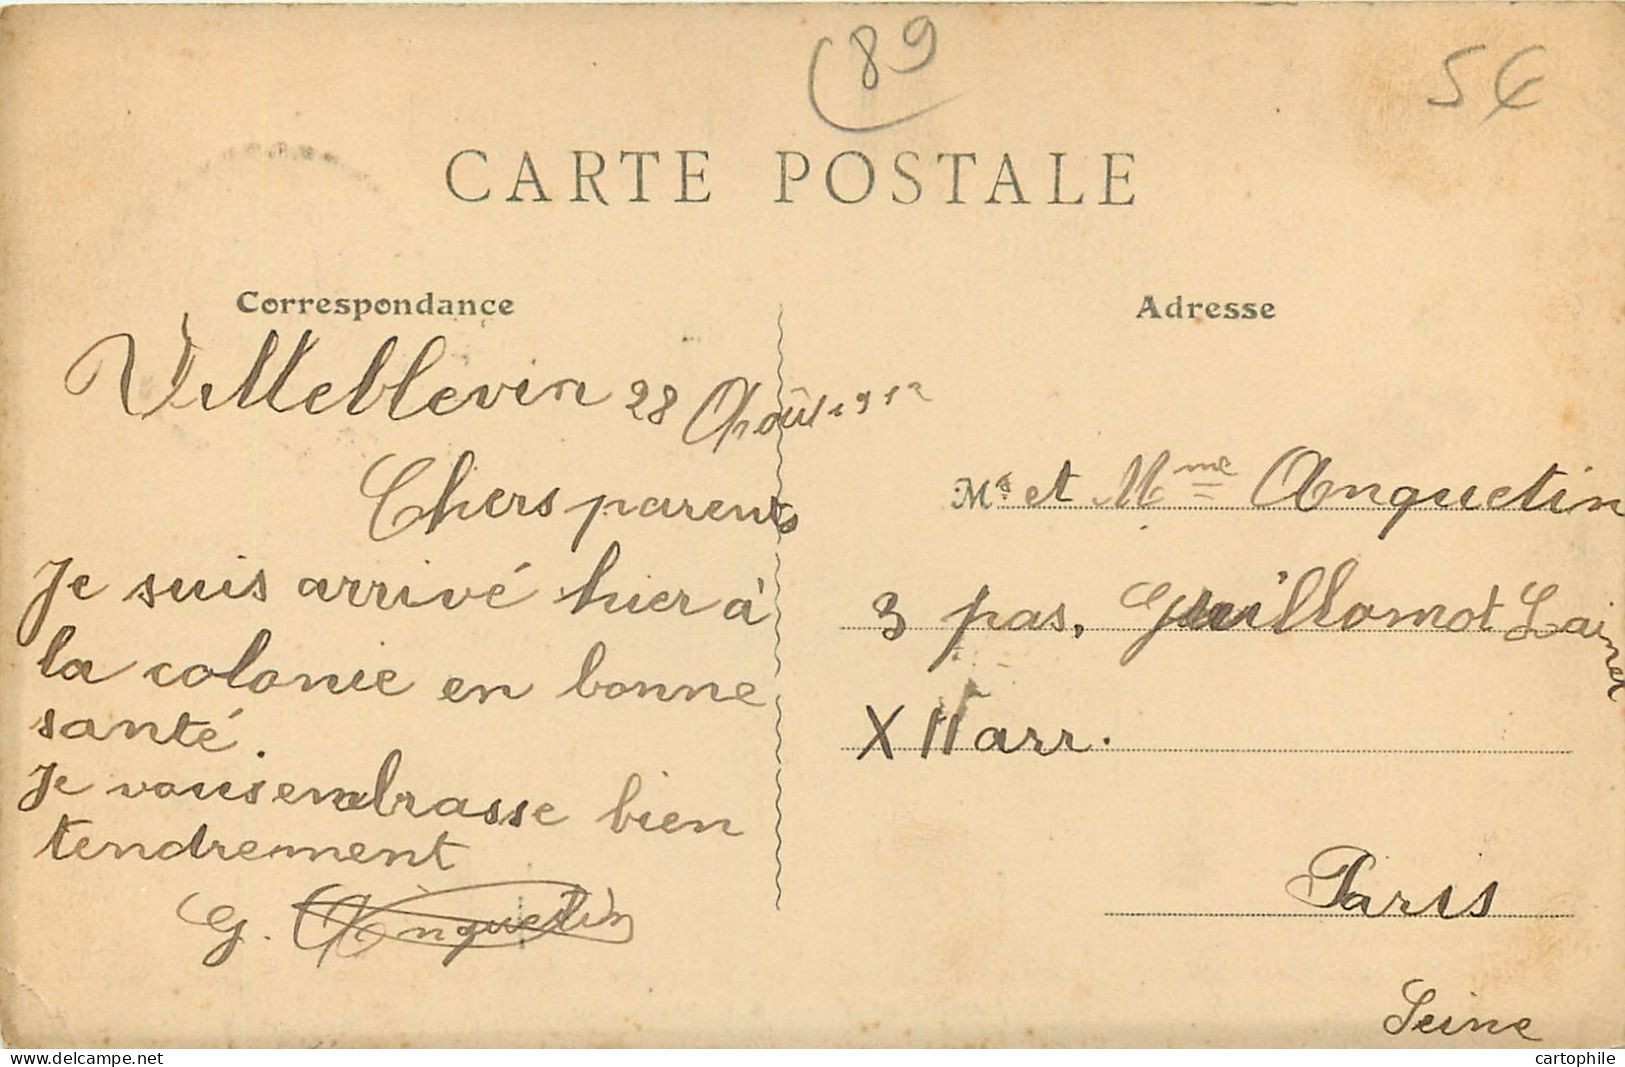 89
5€
CARTE POSTALE
Correspondance
Villeblevin 28 Août 1912
Chers parents
Je suis arrivé hier à
la colonie en bonne
santé.
Je vous embrasse bien
tendrement
G. Anquetin
Adresse
Mrs et Mme Anquetin
3 pas. Guillomot Lainer
XII arr.
Paris
Seine
cartophile